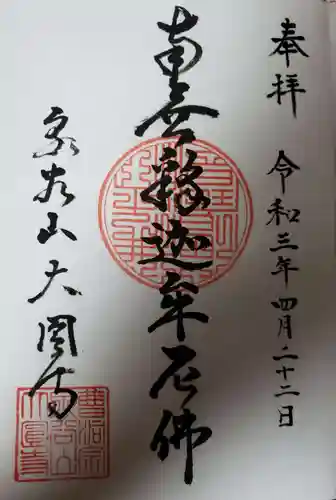 奉拝 令和三年四月二十二日
南無釋迦牟尼佛
山大圓寺